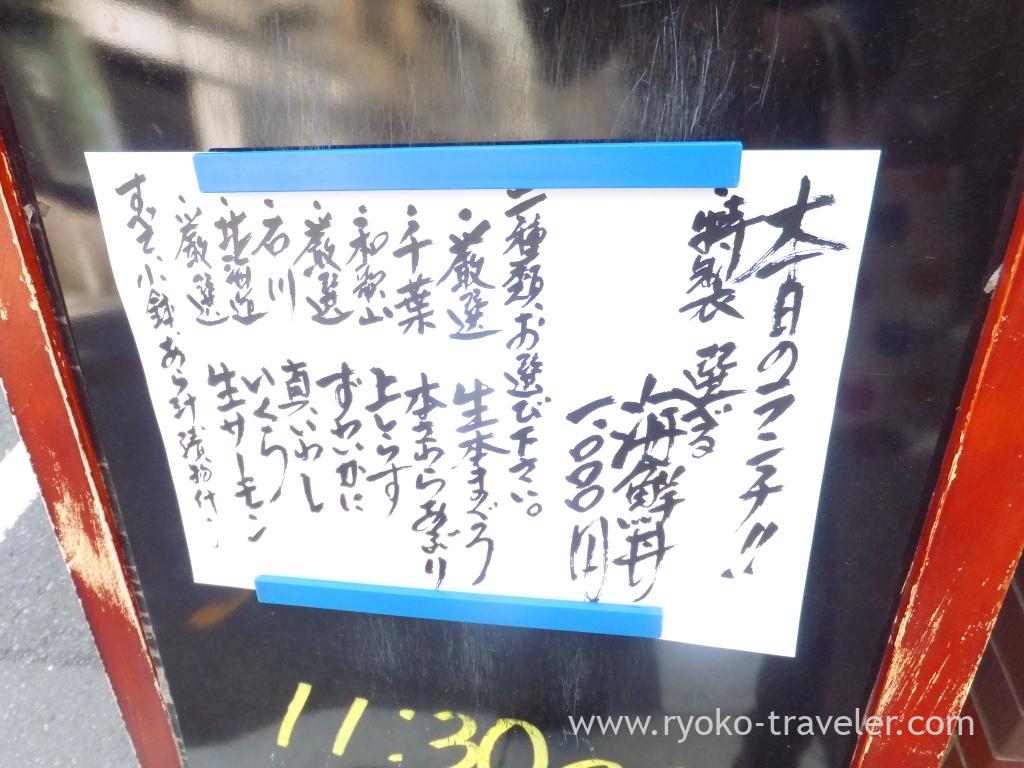 大一のランチ!!
・特製 選べる
海鮮丼
一、〇〇〇円
二種類、お選び下さい。
・厳選 生本まぐろ
・千葉 本あら あぶり
・和歌山 上しらす
・厳選 ずわいがに
・石川 真いわし
・北海道 いくら
・厳選 生サーモン
すべて、小鉢、あら汁、漬物付、
11:30
www.ryoko-traveler.com